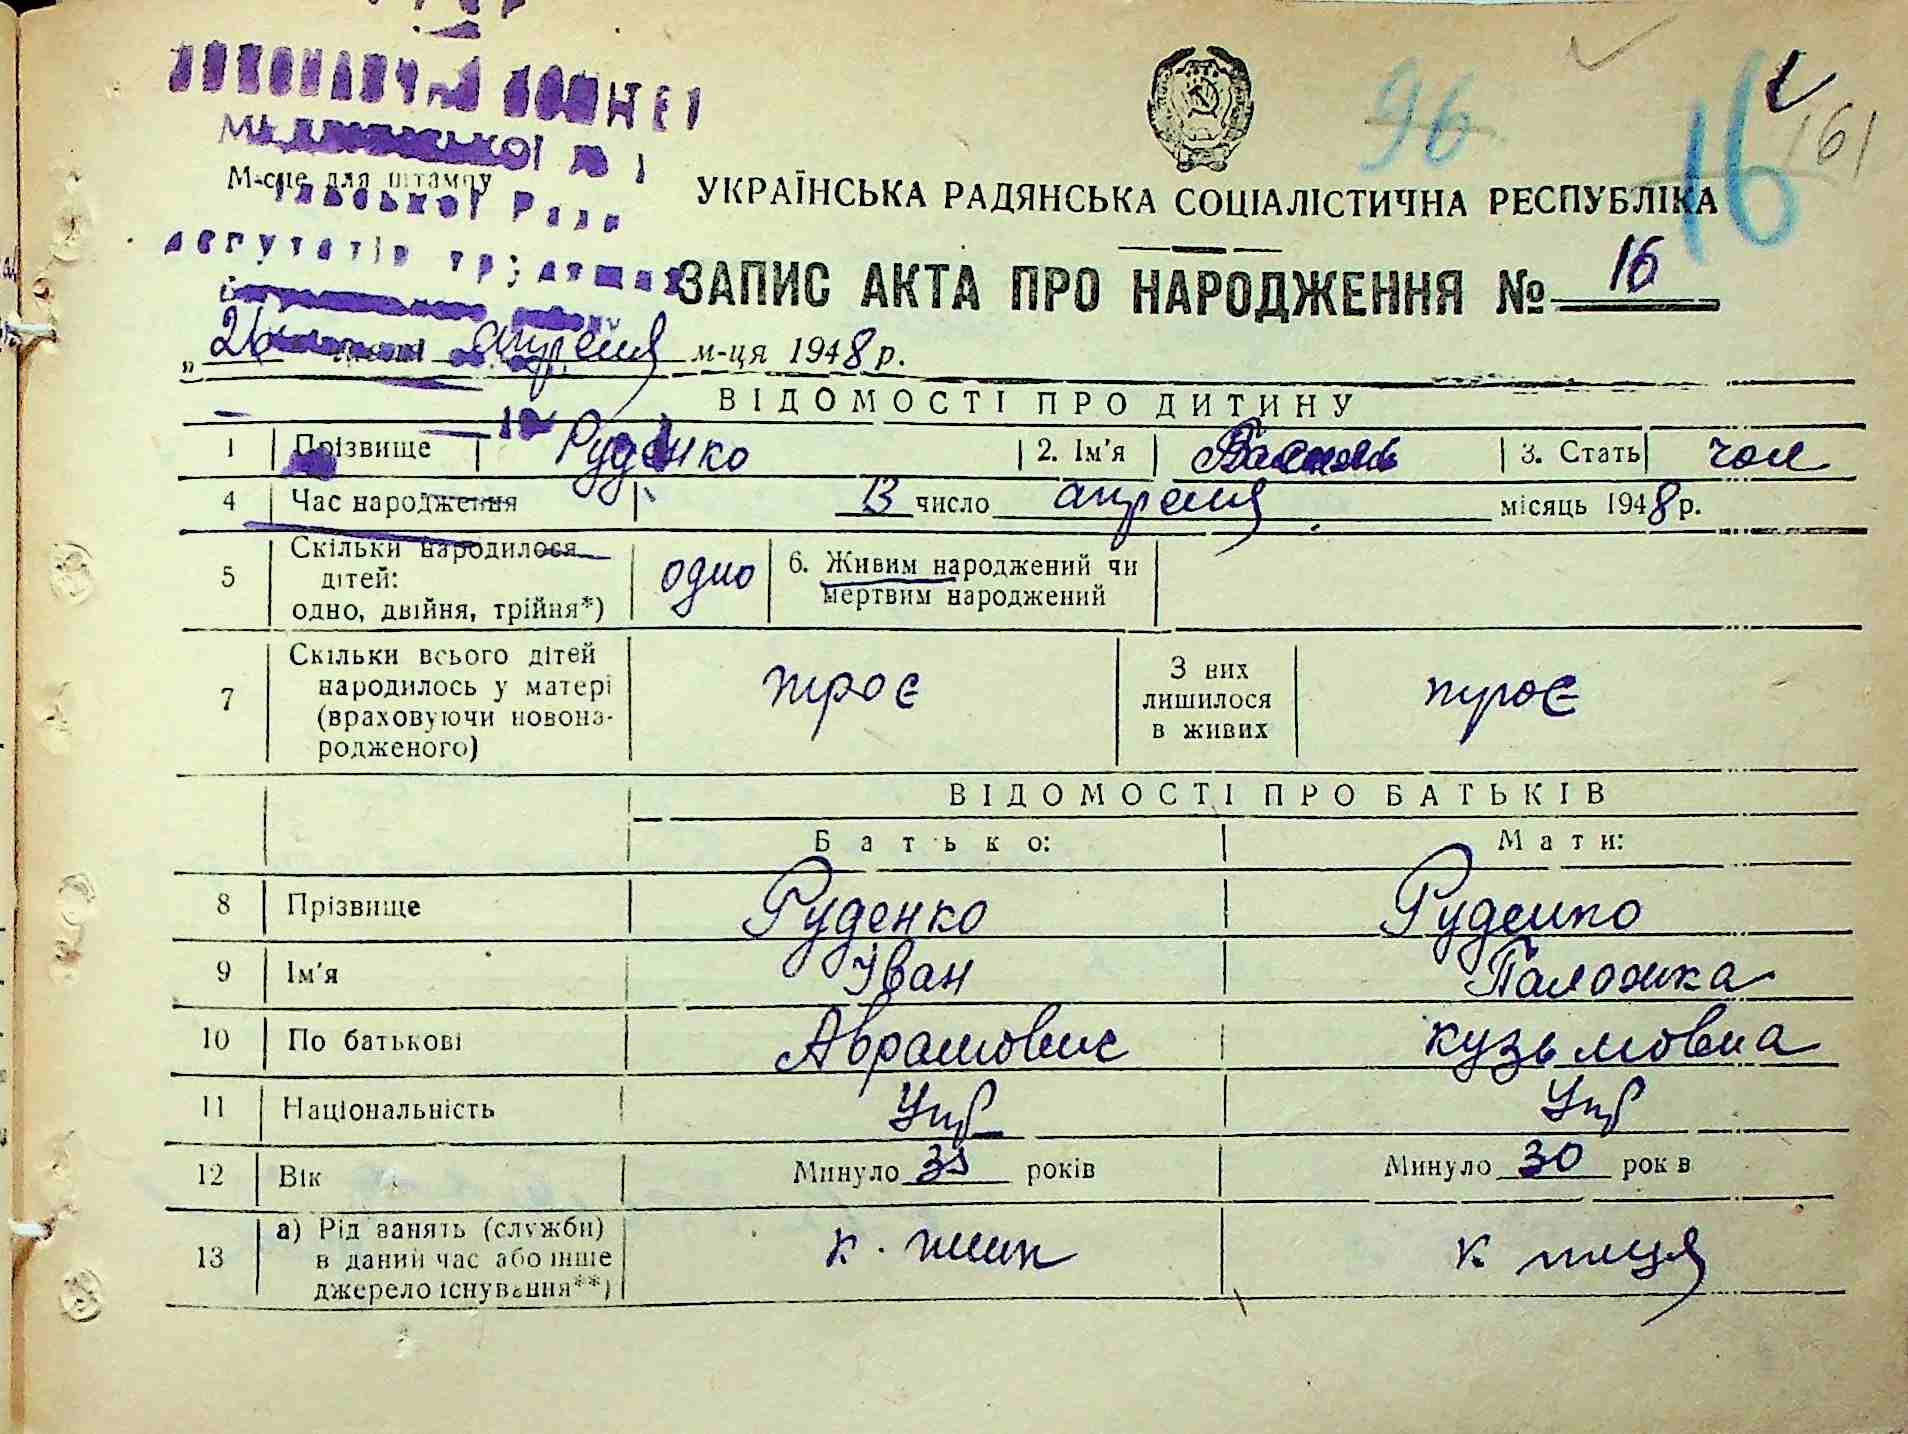 96
16
161
Місце для штампу
УКРАЇНСЬКА РАДЯНСЬКА СОЦІАЛІСТИЧНА РЕСПУБЛІКА
депутатів трудящих
ЗАПИС АКТА ПРО НАРОДЖЕННЯ № 16
„ 26 апреля м-ця 1948 р.
ВІДОМОСТІ ПРО ДИТИНУ
1 Прізвище Руденко 2. Ім'я Василь 3. Стать чол
4 Час народження 13 число апреля місяць 1948 р.
5 Скільки народилося дітей: одно, двійня, трійня*) одно 6. Живим народжений чи мертвим народжений
7 Скільки всього дітей народилось у матері (враховуючи новонародженого) троє З них лишилося в живих троє
ВІДОМОСТІ ПРО БАТЬКІВ
Батько: Мати:
8 Прізвище Руденко Руденко
9 Ім'я Іван Палажка
10 По батькові Аврамович Кузьмовна
11 Національність Укр Укр
12 Вік Минуло років Минуло 30 років
13 а) Рід занять (служби) в даний час або інше джерело існування**) к-ник к ниця